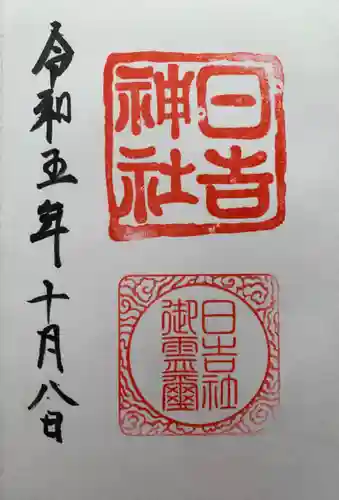 日吉
神社
日吉社
御霊璽
令和五年十月八日